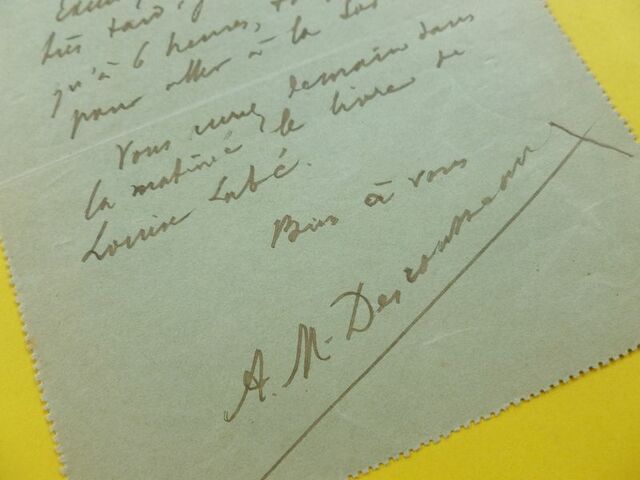 très tard, j
qu'à 6 heures,
pour aller à la
Vous aurez demain dans
la matinée, le livre de
Louise Labé.
Bien à vous
A. M. Desrousseaux